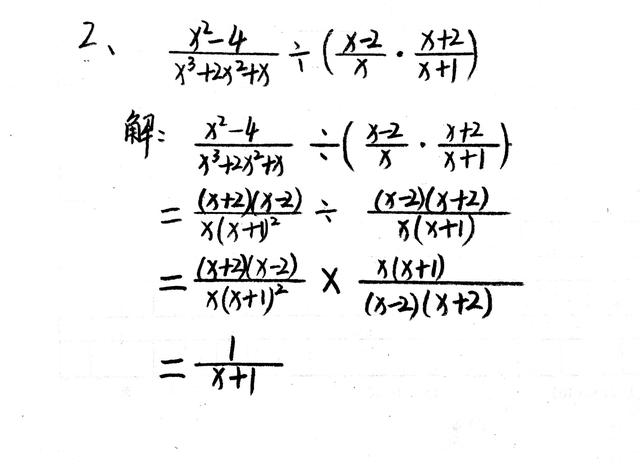 2、 \frac{x²-4}{x³+2x²+x} ÷ (\frac{x-2}{x} · \frac{x+2}{x+1})
解: \frac{x²-4}{x³+2x²+x} ÷ (\frac{x-2}{x} · \frac{x+2}{x+1})
= \frac{(x+2)(x-2)}{x(x+1)²} ÷ \frac{(x-2)(x+2)}{x(x+1)}
= \frac{(x+2)(x-2)}{x(x+1)²} × \frac{x(x+1)}{(x-2)(x+2)}
= \frac{1}{x+1}